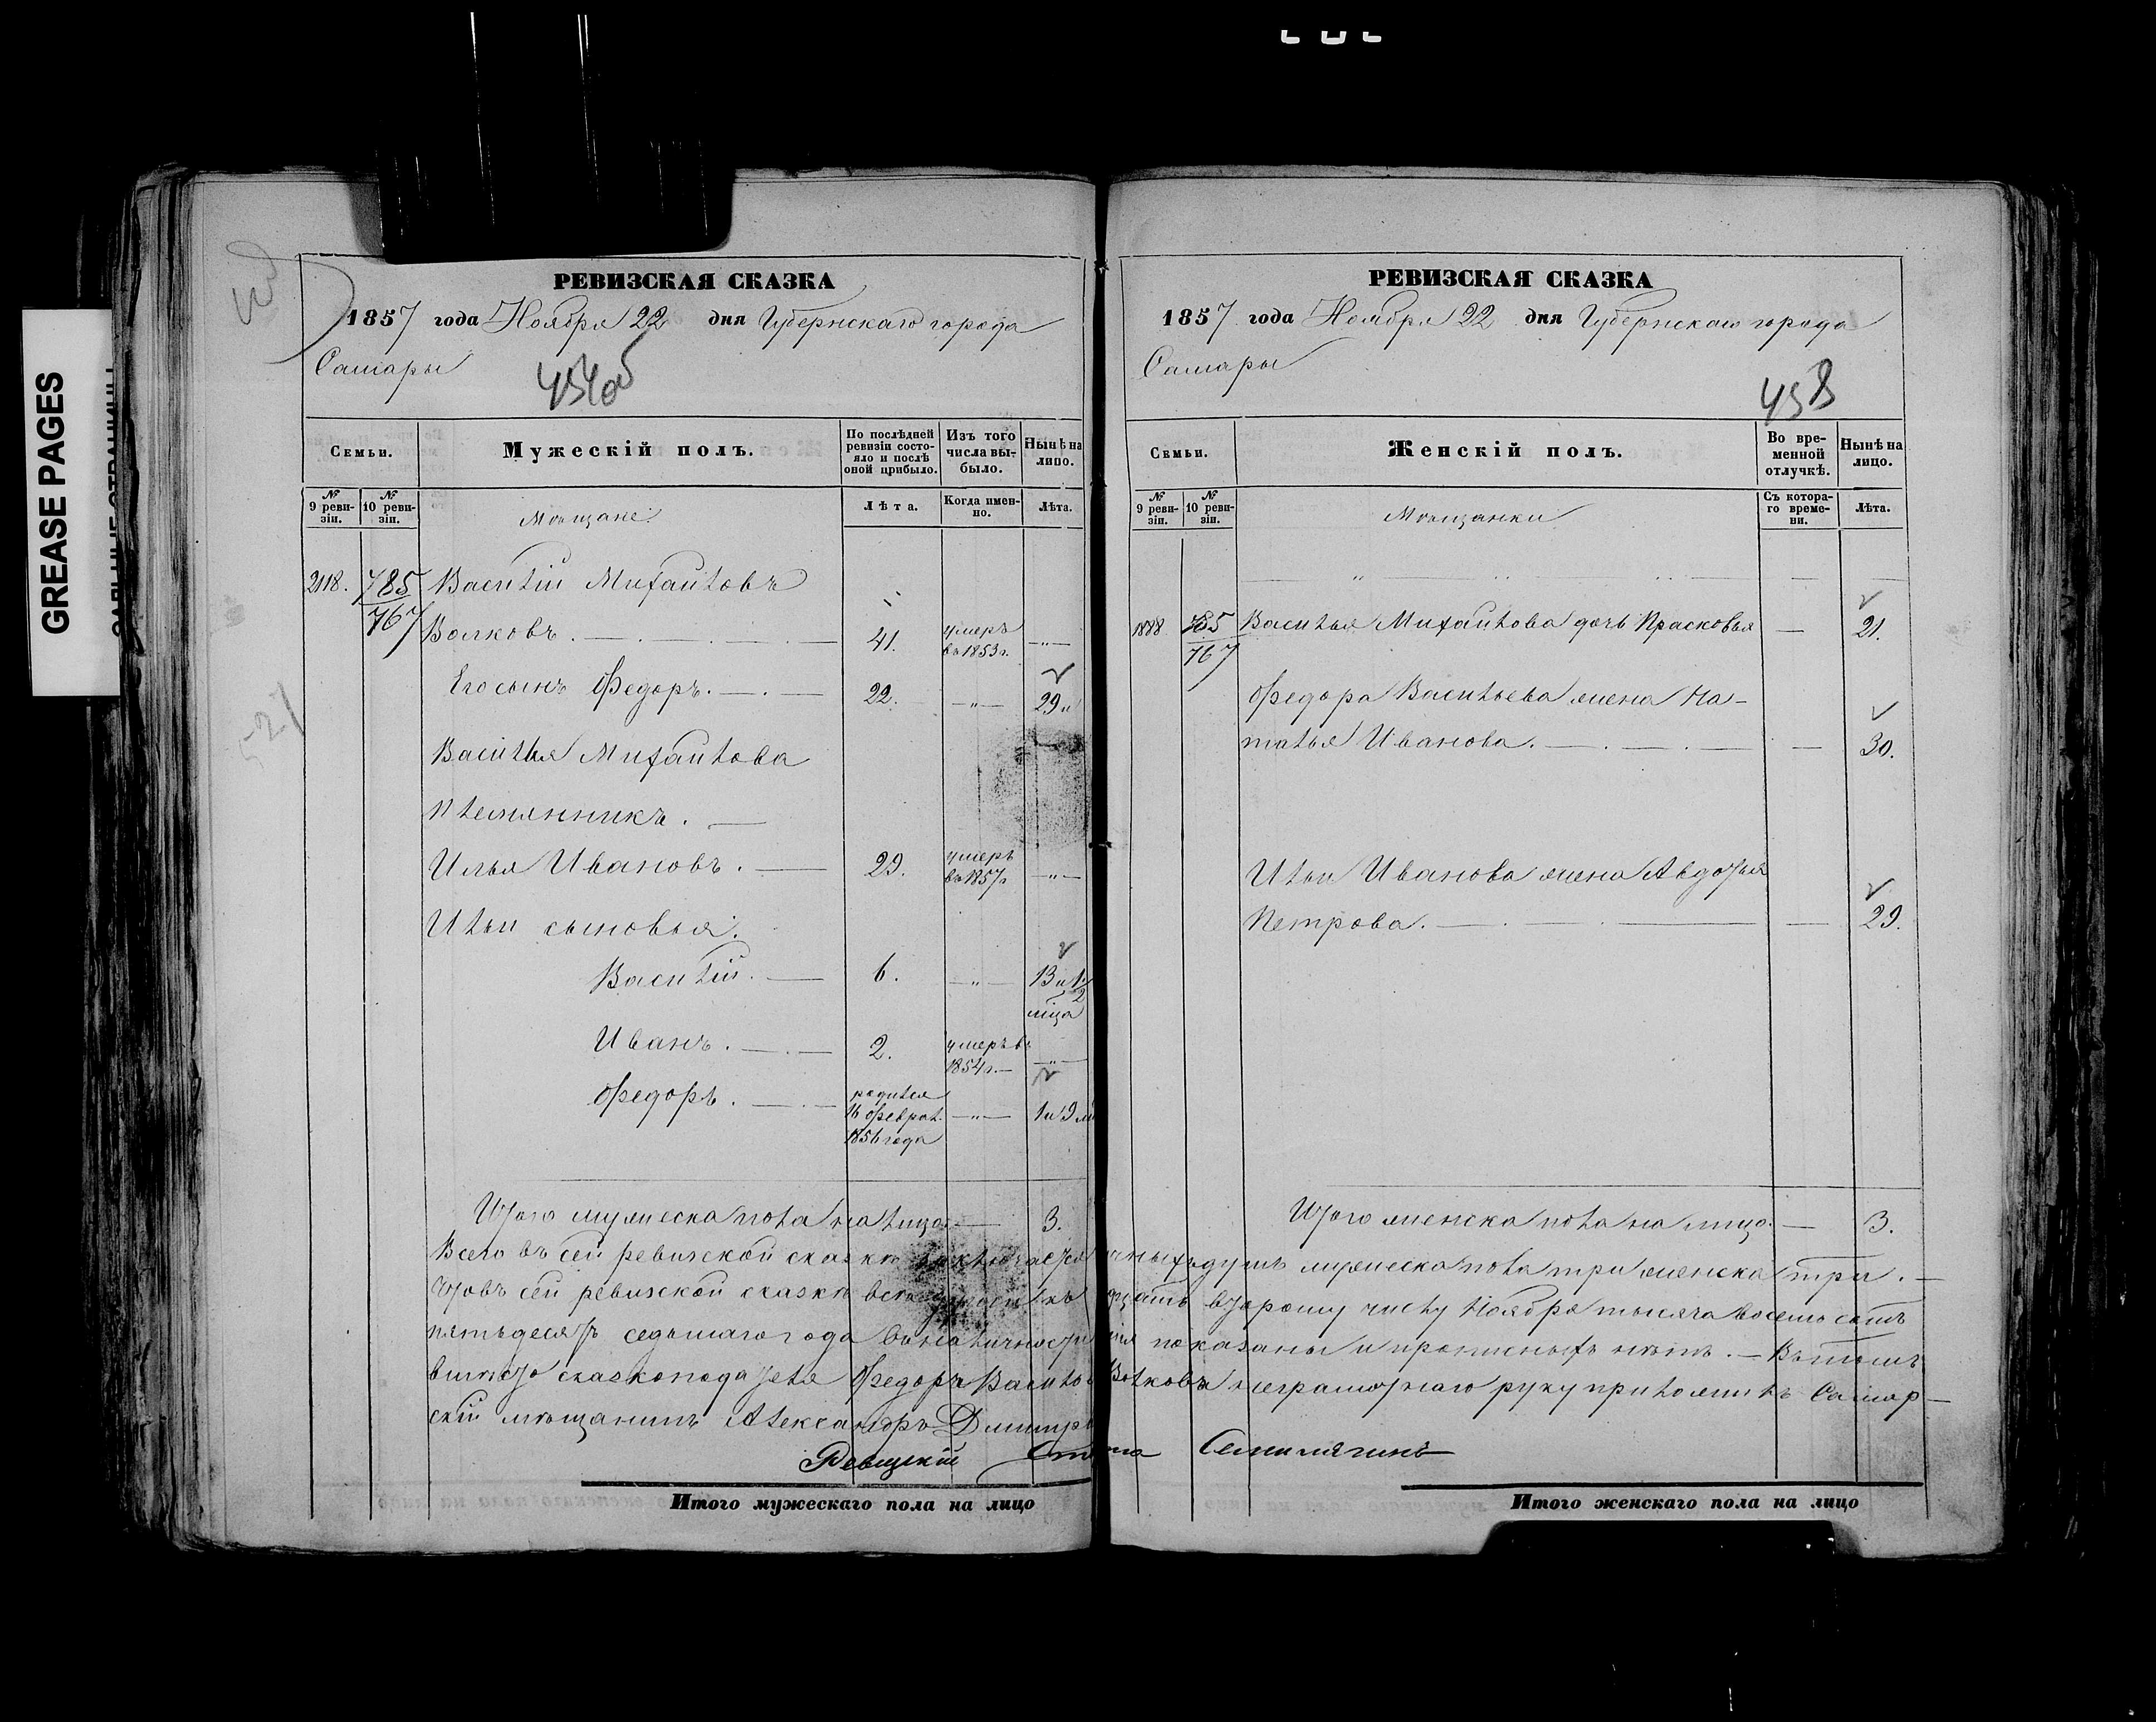 GREASE PAGES
РЕВИЗСКАЯ СКАЗКА
1857 года Ноября 22 дня Губернскаго города
Самары
454об
Семьи.
Мужескій полъ.
По послѣдней ревизіи состояло и послѣ оной прибыло.
Изъ того числа выбыло.
Нынѣ на лицо.
№ 9 ревизіи.
№ 10 ревизіи.
Мѣщане
Лѣта.
Когда именно.
Лѣта.
2118. 785 Василій Михайловъ
767 Волковъ. 41. умеръ въ 1853 г. — " —
Его сынъ Федоръ. 22. — " — 29 "
Василья Михайлова
племянникъ.
Илья Ивановъ. 29. умеръ въ 1857 г — " —
Ильи сыновья.
Василій. 6. — " — 13 и 1/2 мѣца
Иванъ. 2. умеръ въ 1854 г. — " —
Федоръ. родился 16 Феврал. 1856 года — " — 1 и 9 м
Итого мужеска пола на лицо 3.
РЕВИЗСКАЯ СКАЗКА
1857 года Ноября 22 дня Губернскаго города
Самары
458
Семьи.
Женскій полъ.
Во временной отлучкѣ.
Нынѣ на лицо.
№ 9 ревизіи.
№ 10 ревизіи.
Мѣщанки
Съ котораго времени.
Лѣта.
1888 785 Василья Михайлова дочь Прасковья — 21.
767
Федора Васильева жена На-
талья Иванова. — 30.
Ильи Иванова жена Авдотья
Петрова. — 29.
Итого женска пола на лицо. — 3.
Всего въ сей ревизской сказкѣ заключается душъ мужеска пола три женска три. —
Что въ сей ревизской сказкѣ всѣ второму числу Ноября тысяча восемь сотъ
пятьдесятъ седьмаго года въ наличности показаны и прописныхъ нѣтъ. — Въ томъ
вмѣсто сказкоподателя Федора Василь Волковъ неграмотнаго руку приложилъ Самар-
скій мѣщанинъ Александръ Дмитр
Итого мужескаго пола на лицо
Итого женскаго пола на лицо